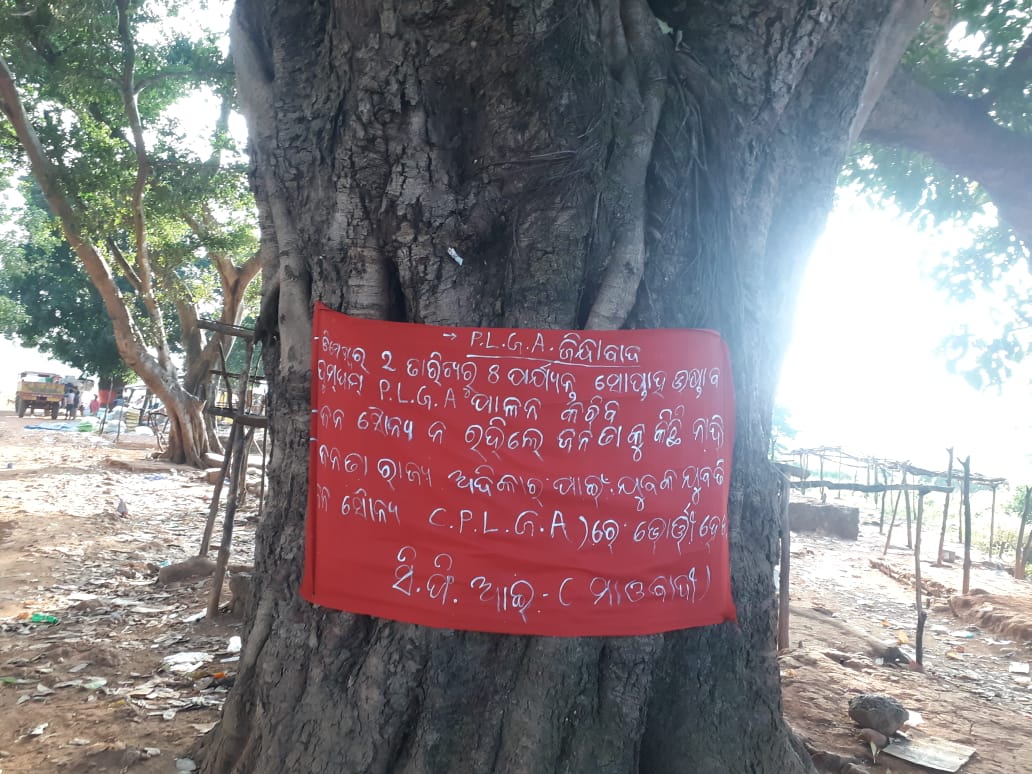 → P.L.G.A. ଜିନ୍ଦାବାଦ
ଡିସେମ୍ବର 2 ତାରିଖରୁ 8 ପର୍ଯ୍ୟନ୍ତ ସୋପ୍ତାହ ଉତ୍ଛବ
ଧୁମଧାମ P.L.G.A ପାଳନ କରିବି
ଜନ ସୈନ୍ୟ ନ ରହିଲେ ଜନତାକୁ କିଛି ନାହିଁ
ଜନତା ରାଜ୍ୟ ଅଧିକାର ପାଇଁ ଯୁବକ ଯୁବତି
ଜନ ସୈନ୍ୟ (P.L.G.A)ରେ ଭୋର୍ତ୍ତି
ସି.ପି.ଆଇ.-(ମାଓବାଦୀ)